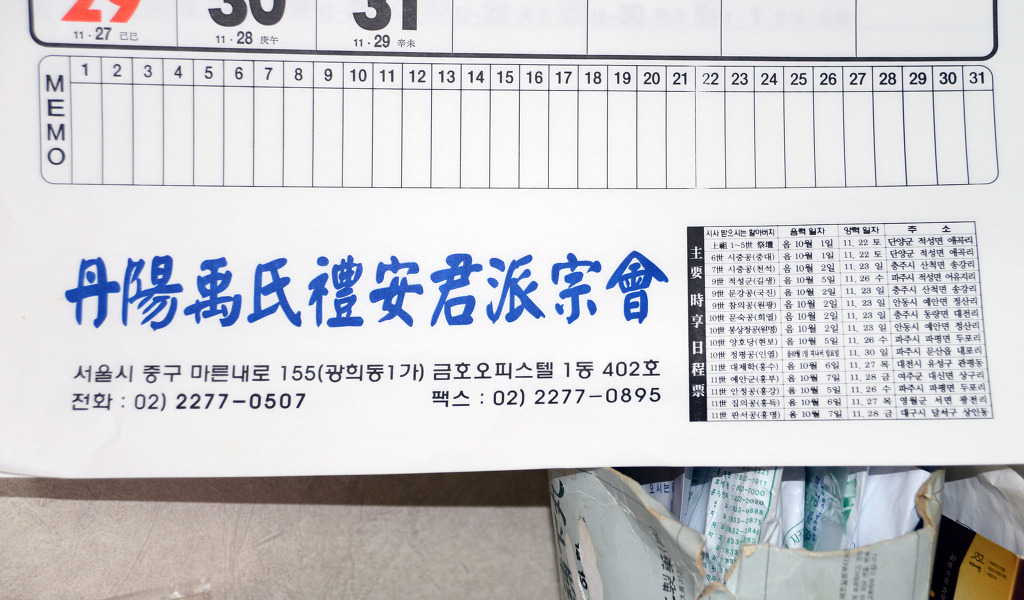 29 30 31
11·27 己巳 11·28 庚午 11·29 辛未
MEMO
1 2 3 4 5 6 7 8 9 10 11 12 13 14 15 16 17 18 19 20 21 22 23 24 25 26 27 28 29 30 31
丹陽禹氏禮安君派宗會
서울시 중구 마른내로 155(광희동1가) 금호오피스텔 1동 402호
전화 : 02) 2277-0507 팩스 : 02) 2277-0895
主要 時享日程票
시사 받으시는 할아버지 음력 일자 양력 일자 주 소
上祖 1~5世 祭壇 음 10월 1일 11. 22 토 단양군 적성면 애곡리
6世 시중공(중대) 음 10월 1일 11. 22 토 단양군 적성면 애곡리
7世 시중공(천석) 음 10월 2일 11. 23 일 충주시 산척면 송강리
9世 적성군(길생) 음 10월 5일 11. 26 수 파주시 적성면 어유지리
9世 문강공(국진) 음 10월 2일 11. 23 일 충주시 산척면 송강리
9世 참의공(원광) 음 10월 2일 11. 23 일 안동시 예안면 정산리
10世 문숙공(희열) 음 10월 2일 11. 23 일 충주시 동량면 대전리
10世 봉상정공(원명) 음 10월 2일 11. 23 일 안동시 예안면 정산리
10世 양호당(현보) 음 10월 5일 11. 26 수 파주시 파평면 두포리
10世 정평공(인열) 11. 30 일 파주시 문산읍 내포리
11世 대제학(홍수) 음 10월 6일 11. 27 목 대전시 유성구 관평동
11世 예안군(홍부) 음 10월 7일 11. 28 금 여주군 대신면 상구리
11世 안정공(홍강) 음 10월 5일 11. 26 수 파주시 파평면 두포리
11世 집의공(홍득) 음 10월 6일 11. 27 목 영월군 서면 광전리
11世 판서공(홍명) 음 10월 7일 11. 28 금 대구시 달서구 상인동
오시는